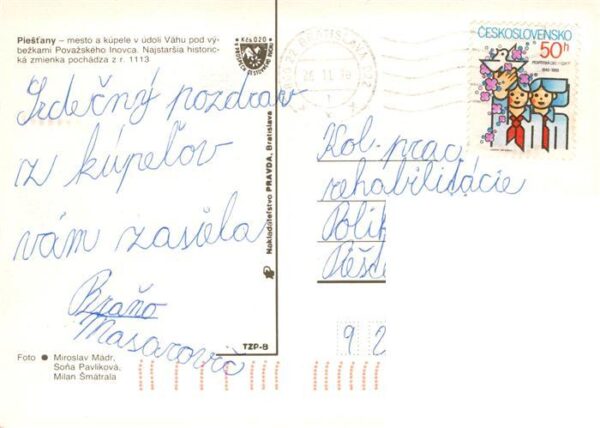 Piešťany – mesto a kúpele v údolí Váhu pod vý-
bežkami Považského Inovca. Najstaršia historic-
ká zmienka pochádza z r. 1113
Kčs 0,20
BRATISLAVA
ČESKOSLOVENSKO
50h
Srdečný pozdrav
z kúpeľov
vám zasiela
Braňo
Masarovič
Nakladateľstvo PRAVDA, Bratislava
TZP-B
Kol. prac.
rehabilitácie
Polik
Piešť
9 2
Foto ● Miroslav Mádr,
Soňa Pavlíková,
Milan Šmátrala